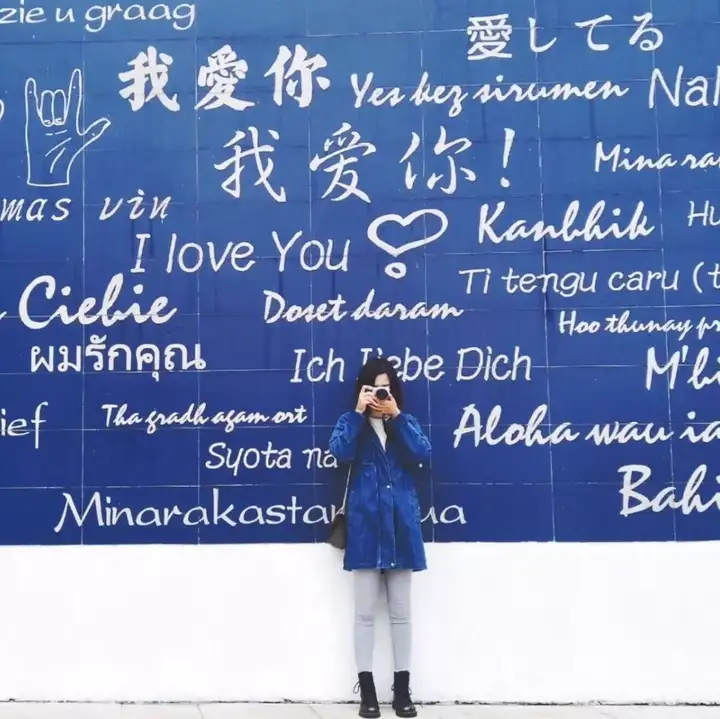 zie u graag
愛してる
我愛你
Yes kez sirumem
我爱你!
mas vin
Kanbhik
I love You
Ti tengu caru (
Ciebie
Doset daram
Hoo thunay
ผมรักคุณ
Ich Liebe Dich
ief
Tha gradh agam ort
Aloha wau ia
Syota na
Minarakastan ua